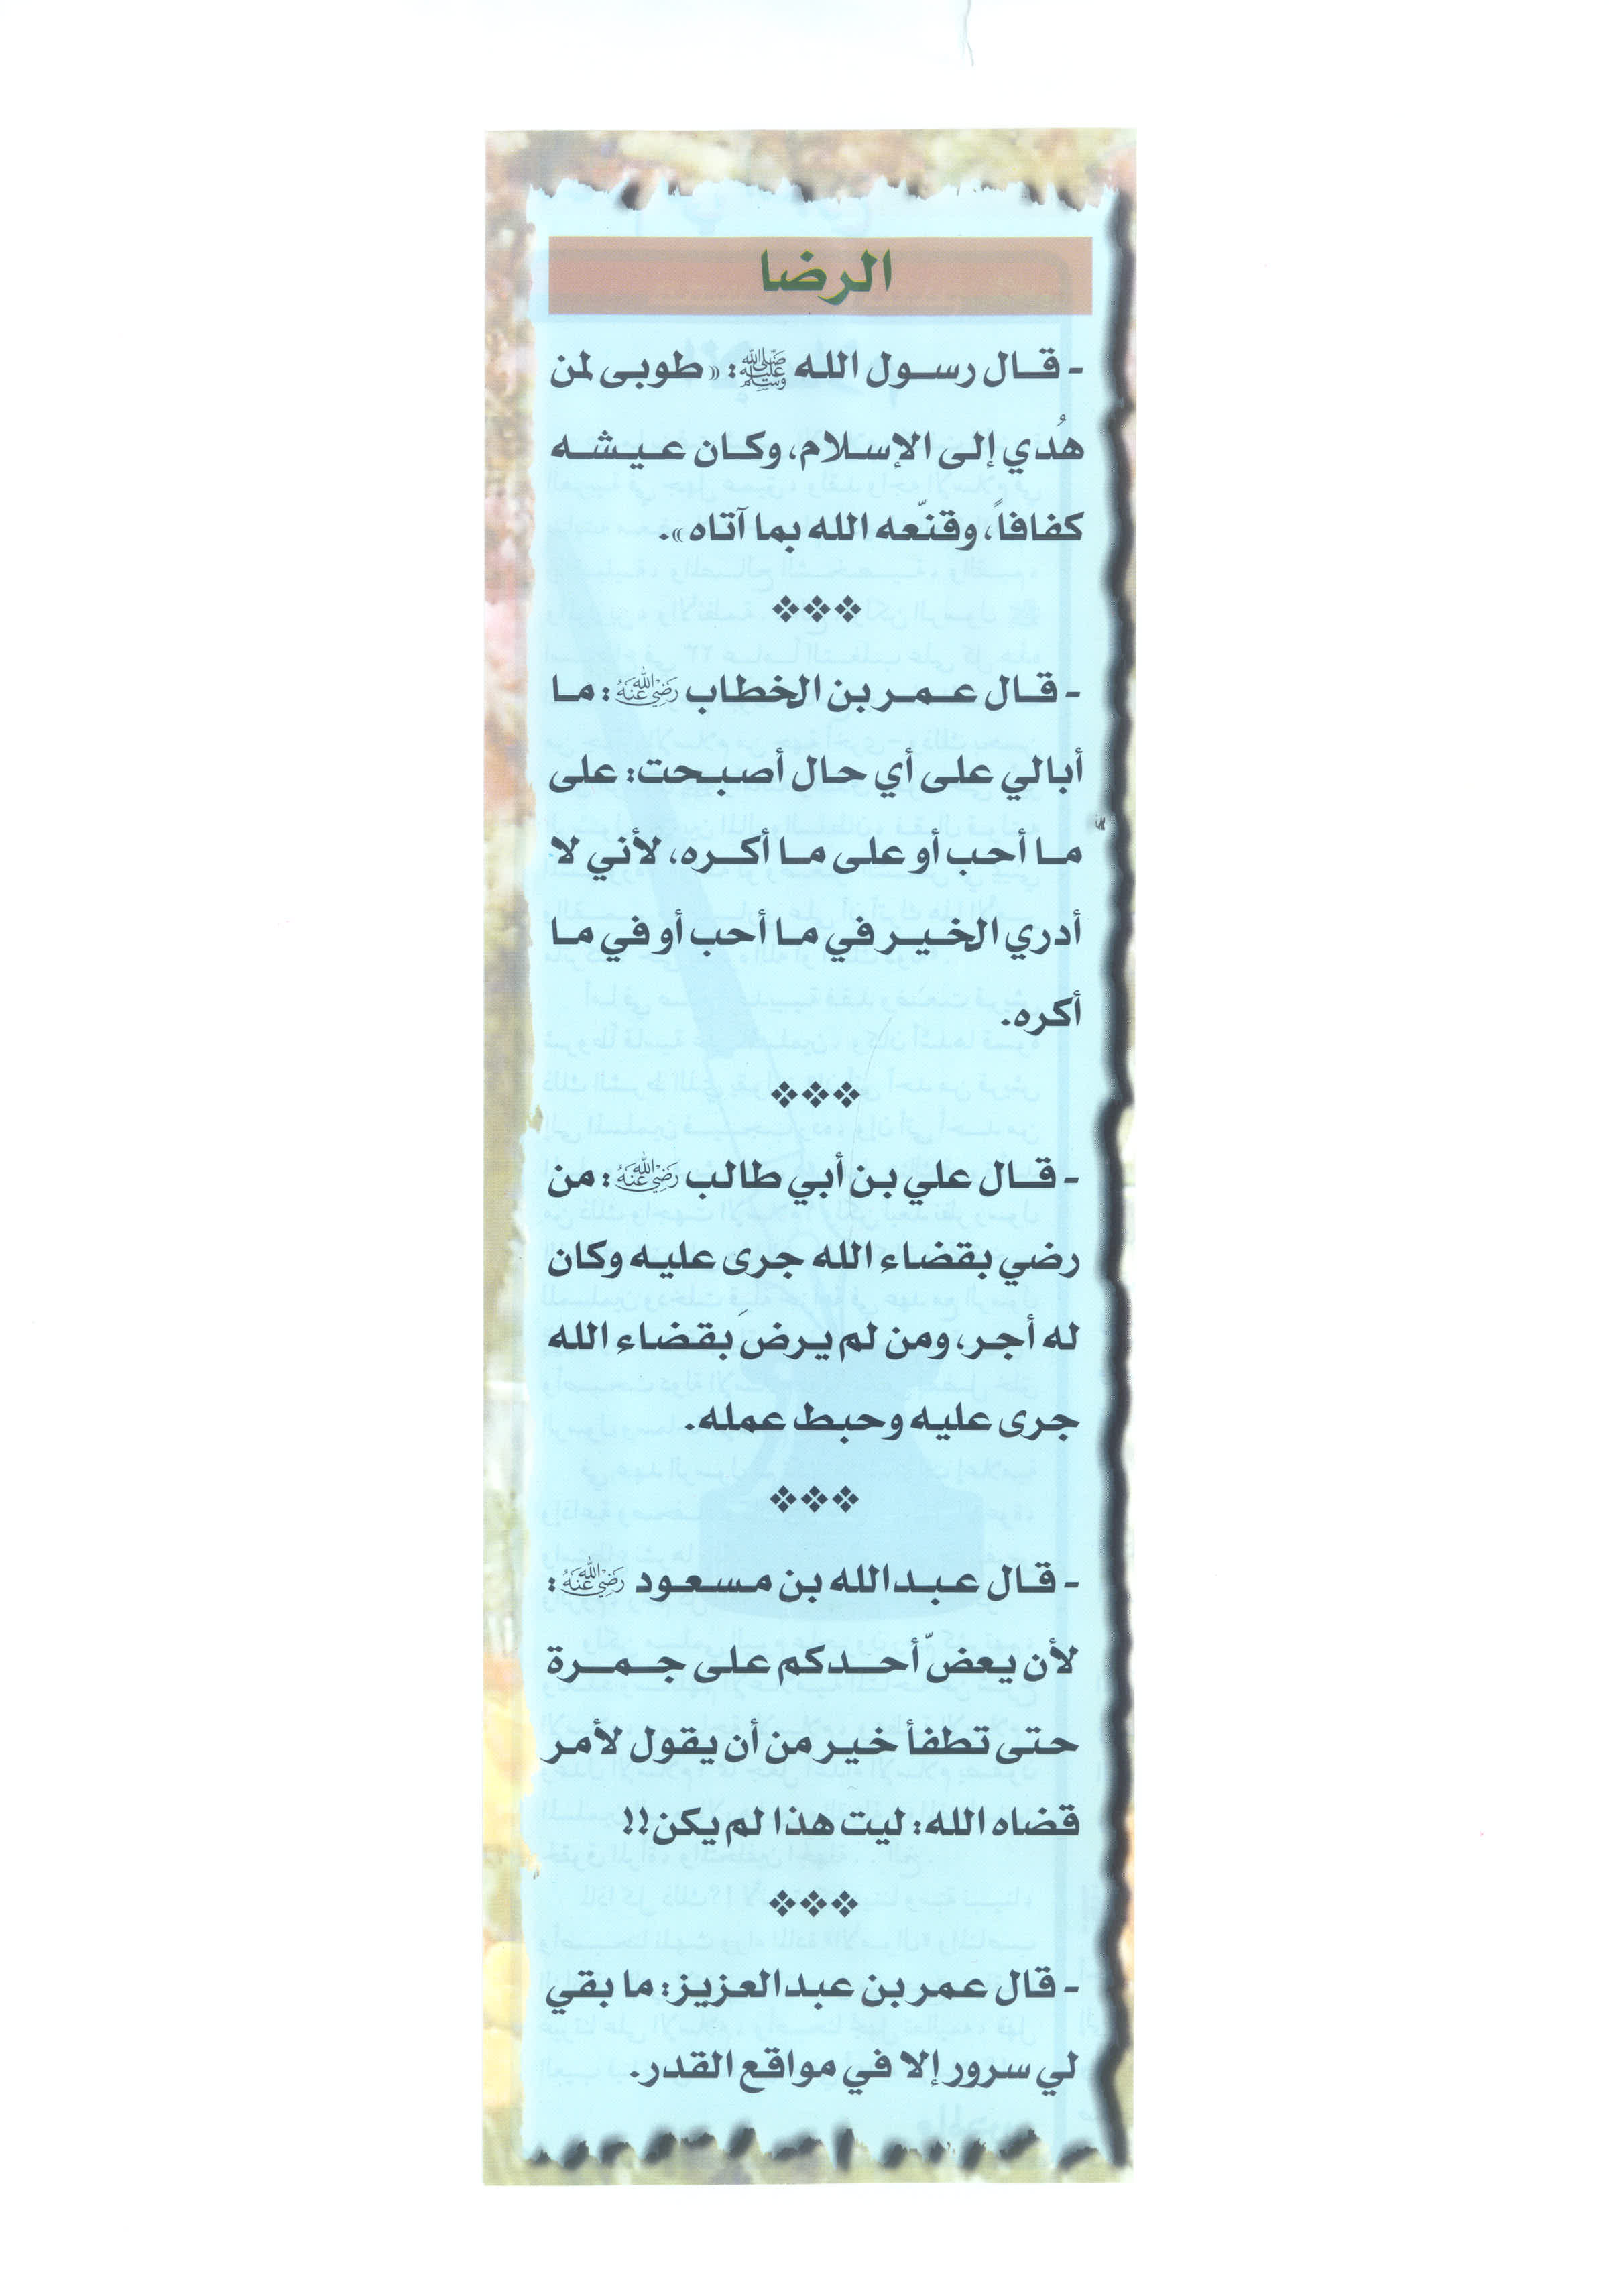 الرضا
- قال رسول الله ﷺ: «طوبى لمن
هُدي إلى الإسلام، وكان عيشه
كفافاً، وقنّعه الله بما آتاه».
❖❖❖
- قال عمر بن الخطاب رَضِيَ اللهُ عَنْهُ: ما
أبالي على أي حال أصبحت: على
ما أحب أو على ما أكره، لأني لا
أدري الخير في ما أحب أو في ما
أكره.
❖❖❖
- قال علي بن أبي طالب رَضِيَ اللهُ عَنْهُ: من
رضي بقضاء الله جرى عليه وكان
له أجر، ومن لم يرضَ بقضاء الله
جرى عليه وحبط عمله.
❖❖❖
- قال عبدالله بن مسعود رَضِيَ اللهُ عَنْهُ:
لأن يعضّ أحدكم على جمرة
حتى تطفأ خير من أن يقول لأمر
قضاه الله: ليت هذا لم يكن!!
❖❖❖
- قال عمر بن عبدالعزيز: ما بقي
لي سرور إلا في مواقع القدر.